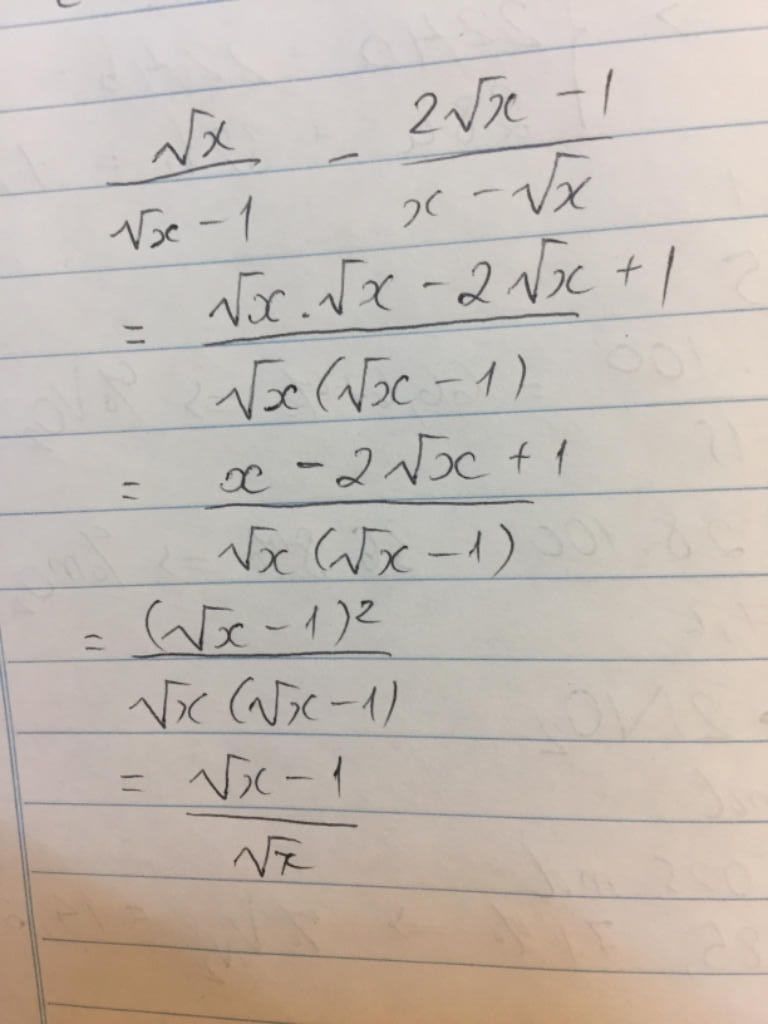 √x / (√x − 1) − (2√x − 1) / (x − √x)
= (√x . √x − 2√x + 1) / (√x(√x − 1))
= (x − 2√x + 1) / (√x(√x − 1))
= (√x − 1)² / (√x(√x − 1))
= (√x − 1) / √x